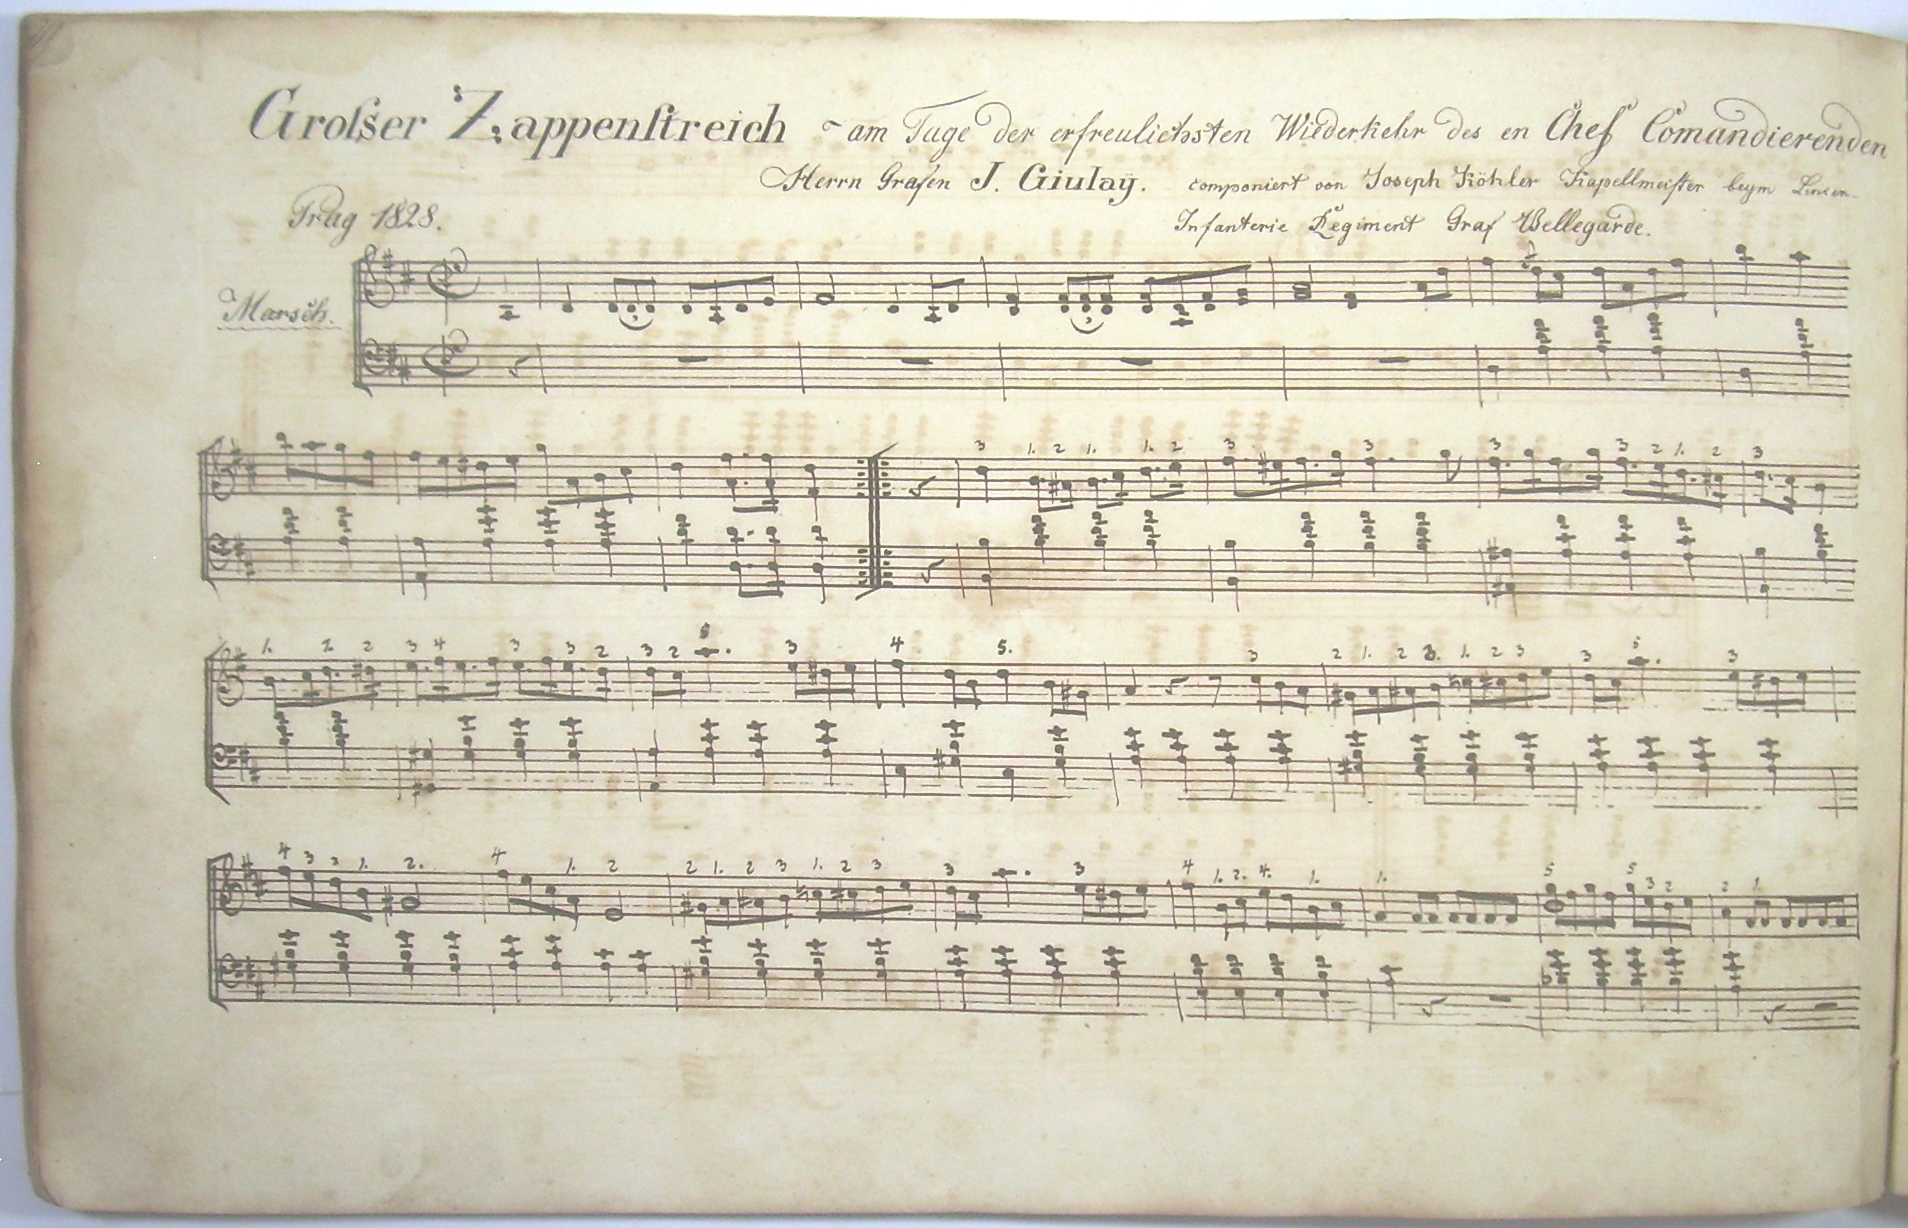 Großer Zappenstreich - am Tage der erfreulichsten Wiederkehr des en Chef Comandierenden
Herrn Grafen J. Giulaÿ. componiert von Joseph Köhler Kapellmeister beym Linien-
Prag 1828. Infanterie Regiment Graf Bellegarde.
Marsch.
3 1. 2 1. 1. 2 3 3 3 3 2 1. 2 3
1. 2. 2 3 4 3 3 2 3 2 5 3 4 5. 3 2 1. 2 3. 1. 2 3 3 5 3
4 3 2 1. 2. 4 1. 2 2 1. 2 3 1. 2 3 3 3 4 1. 2. 4. 1. 1. 5 5 3 2 2 1.